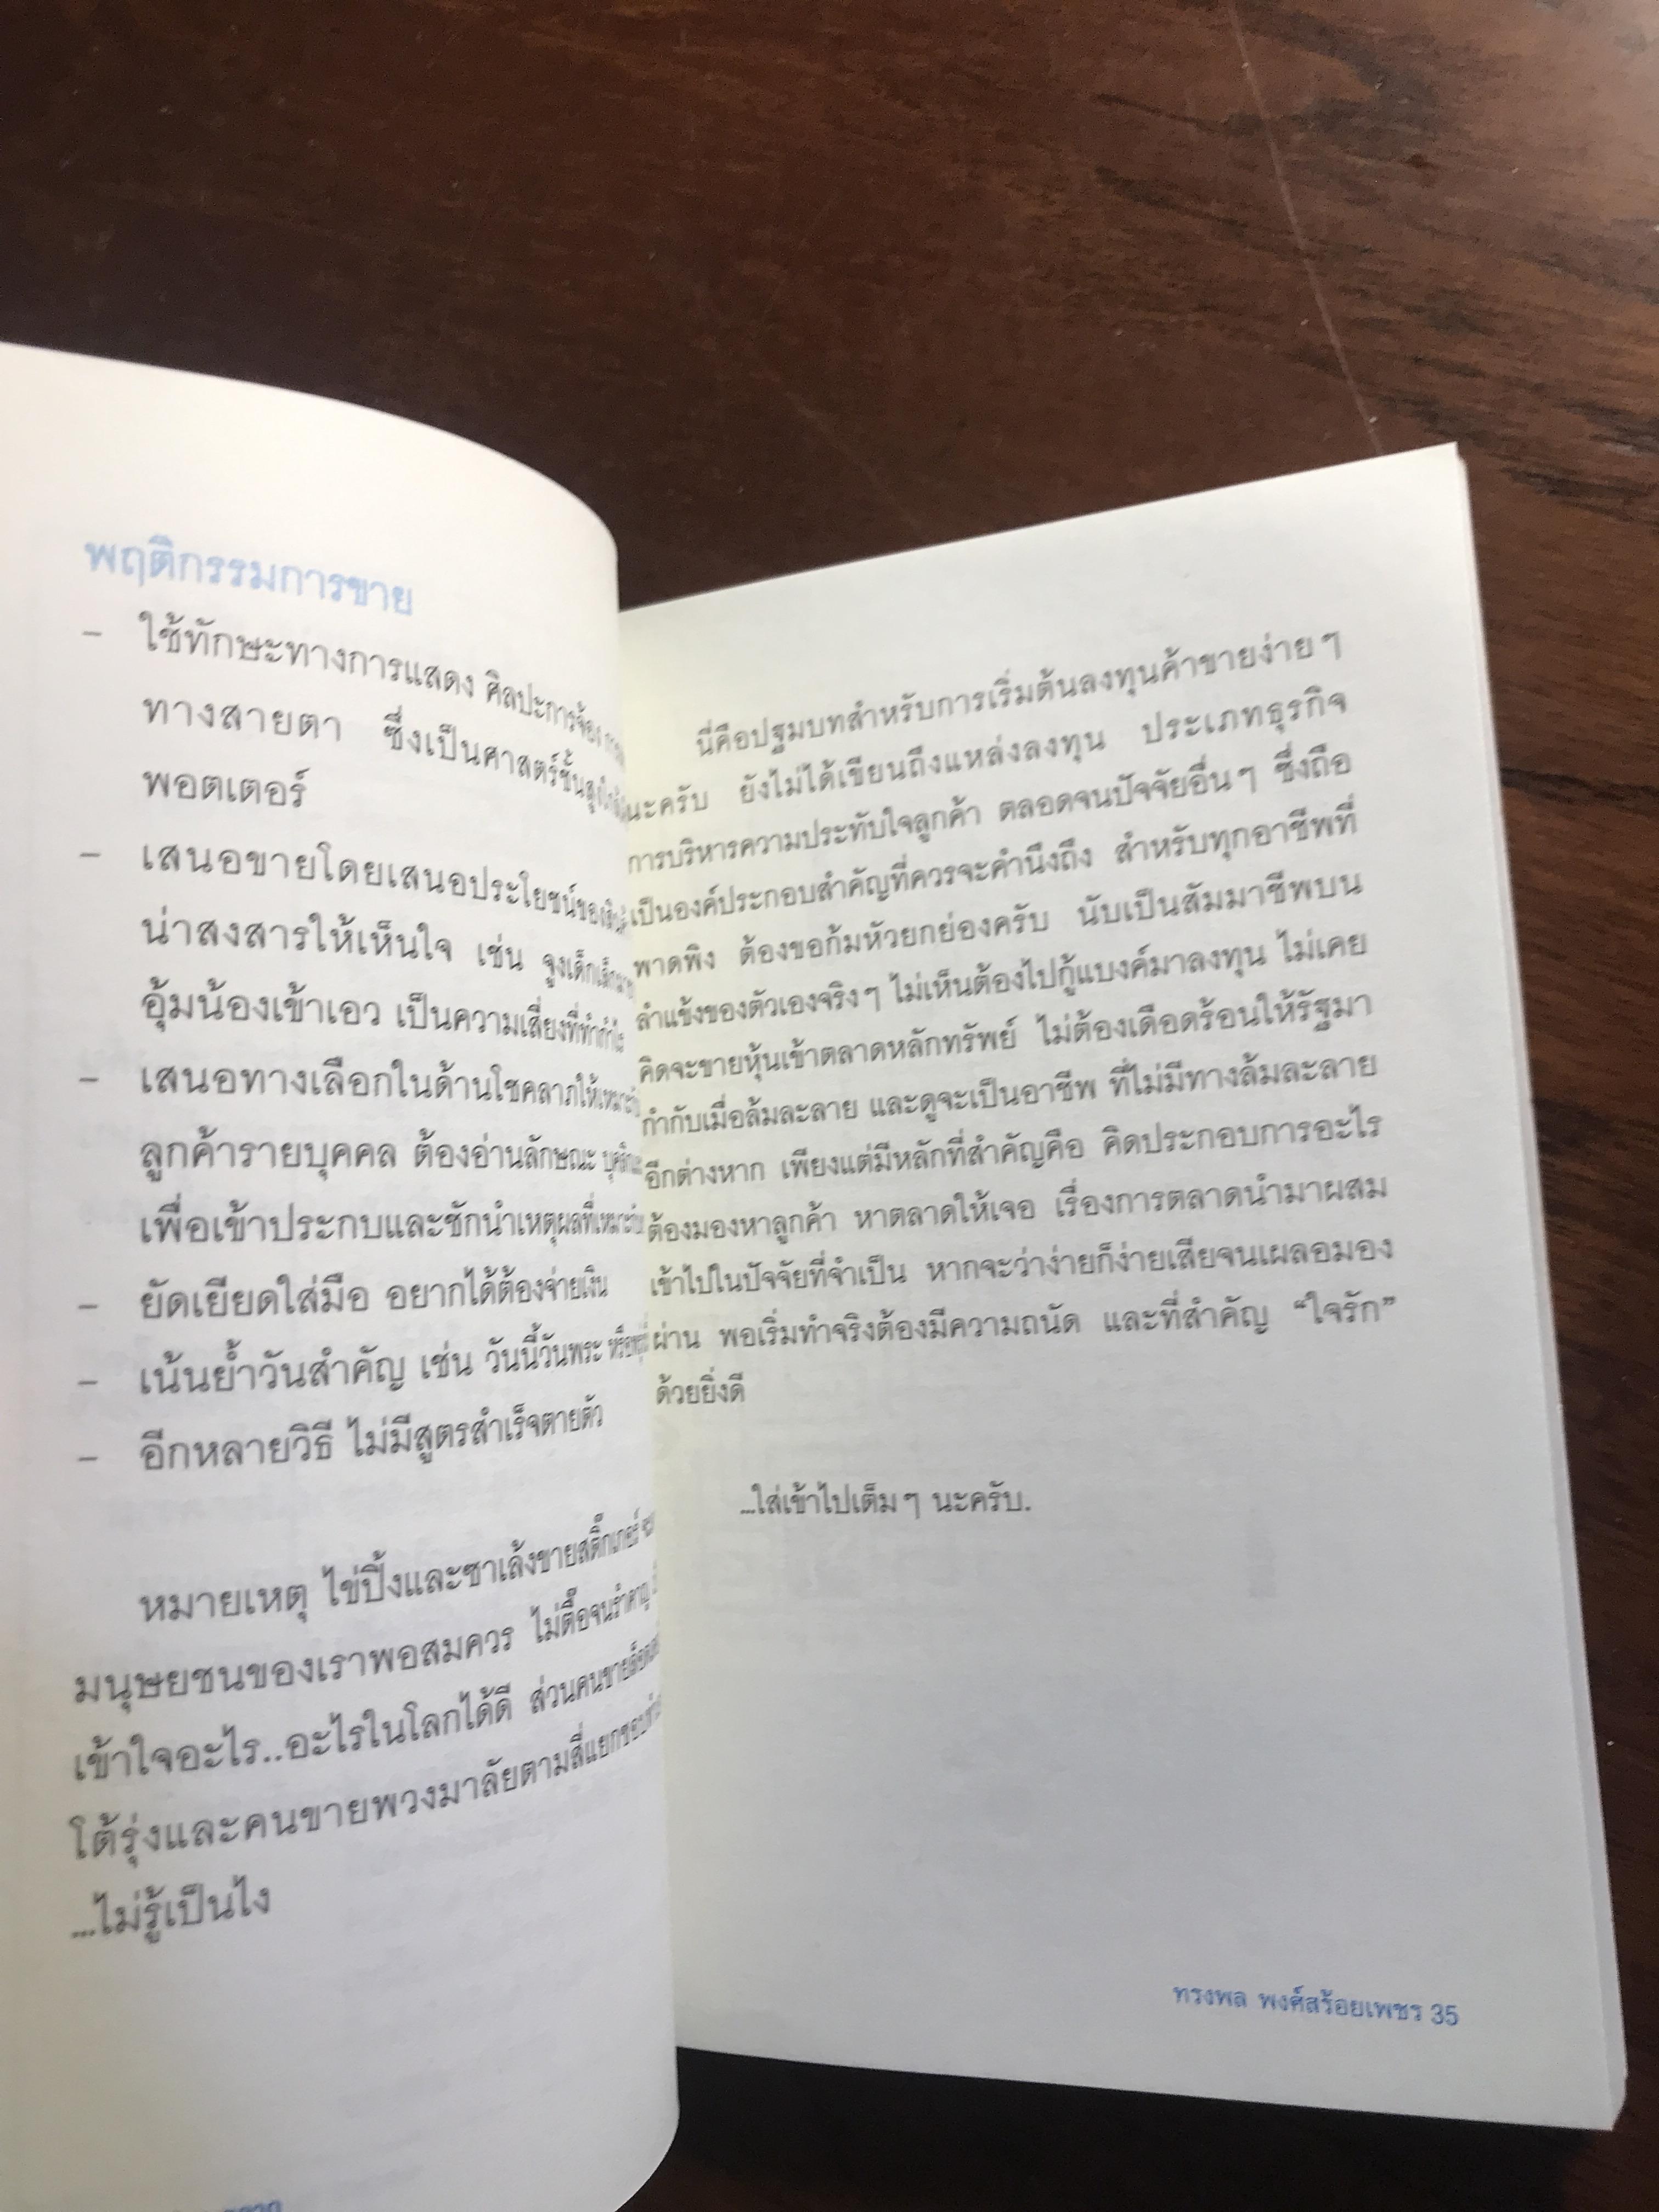 พฤติกรรมการขาย
– ใช้ทักษะทางการแสดง ศิลปะการจ้อง
ทางสายตา ซึ่งเป็นศาสตร์ชั้นสูง
พอตเตอร์
– เสนอขายโดยเสนอประโยชน์ของ
น่าสงสารให้เห็นใจ เช่น จูงเด็กเล็ก
อุ้มน้องเข้าเอว เป็นความเสี่ยงที่ทำกำไร
– เสนอทางเลือกในด้านโชคลาภให้เหมาะ
ลูกค้ารายบุคคล ต้องอ่านลักษณะ
เพื่อเข้าประกบและชักนำเหตุผลที่เหมาะ
– ยัดเยียดใส่มือ อยากได้ต้องจ่ายเงิน
– เน้นย้ำวันสำคัญ เช่น วันนี้วันพระ
– อีกหลายวิธี ไม่มีสูตรสำเร็จตายตัว
หมายเหตุ ไข่ปิ้งและซาเล้งขายสติ๊กเกอร์
มนุษยชนของเราพอสมควร ไม่ตื๊อจนรำคาญ
เข้าใจอะไร..อะไรในโลกได้ดี ส่วนคนขาย
โต้รุ่งและคนขายพวงมาลัยตามสี่แยก
...ไม่รู้เป็นไง
นี่คือปฐมบทสำหรับการเริ่มต้นลงทุนค้าขายง่ายๆ
นะครับ ยังไม่ได้เขียนถึงแหล่งลงทุน ประเภทธุรกิจ
การบริหารความประทับใจลูกค้า ตลอดจนปัจจัยอื่นๆ ซึ่งถือ
เป็นองค์ประกอบสำคัญที่ควรจะคำนึงถึง สำหรับทุกอาชีพที่
พาดพิง ต้องขอก้มหัวยกย่องครับ นับเป็นสัมมาชีพบน
ลำแข้งของตัวเองจริงๆ ไม่เห็นต้องไปกู้แบงค์มาลงทุน ไม่เคย
คิดจะขายหุ้นเข้าตลาดหลักทรัพย์ ไม่ต้องเดือดร้อนให้รัฐมา
กำกับเมื่อล้มละลาย และดูจะเป็นอาชีพ ที่ไม่มีทางล้มละลาย
อีกต่างหาก เพียงแต่มีหลักที่สำคัญคือ คิดประกอบการอะไร
ต้องมองหาลูกค้า หาตลาดให้เจอ เรื่องการตลาดนำมาผสม
เข้าไปในปัจจัยที่จำเป็น หากจะว่าง่ายก็ง่ายเสียจนเผลอมอง
ผ่าน พอเริ่มทำจริงต้องมีความถนัด และที่สำคัญ “ใจรัก”
ด้วยยิ่งดี
...ใส่เข้าไปเต็มๆ นะครับ.
ทรงพล พงศ์สร้อยเพชร 35